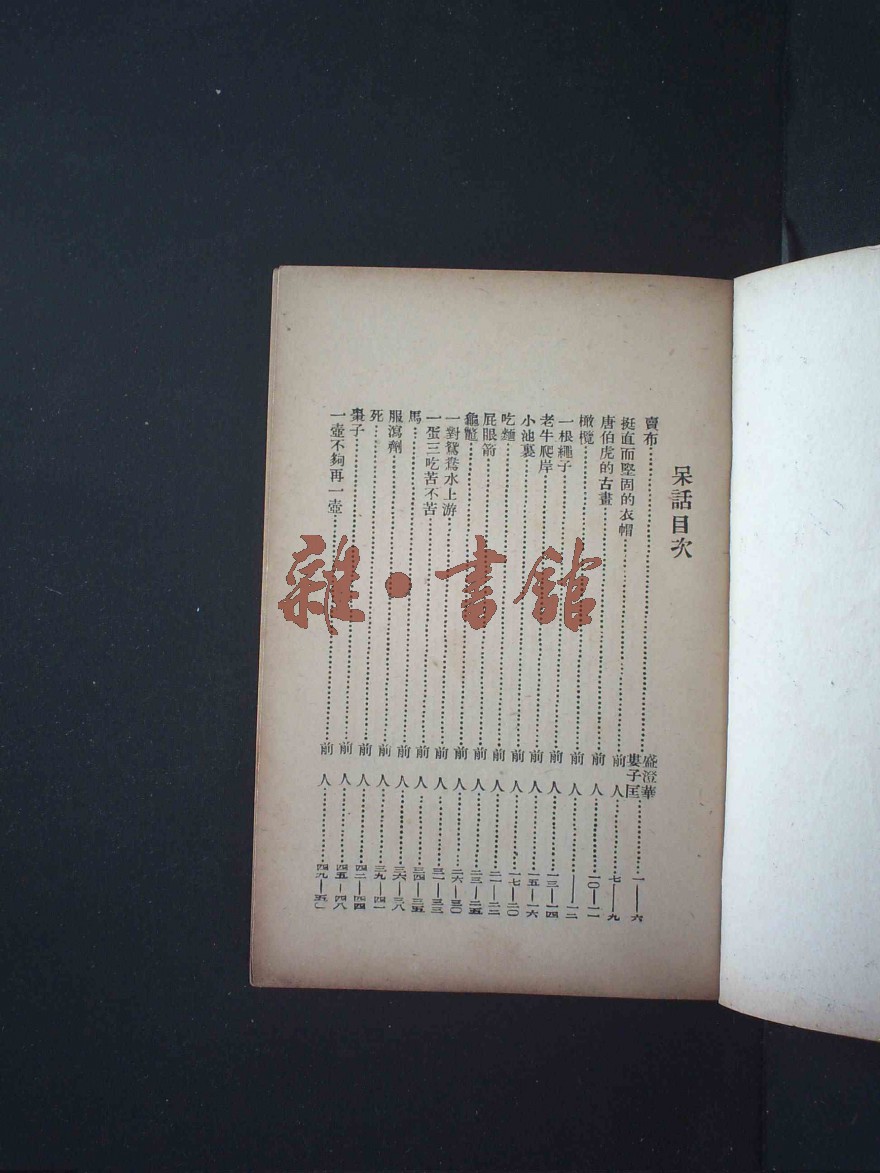 呆話目次
賣布……盛澄華 婁子匡……一——六
挺直而堅固的衣帽……前人……七——九
唐伯虎的古畫……前人……一〇—一一
橄欖……前人……——一二
一根繩子……前人……一三—一四
老牛爬岸……前人……一五—一六
小池裏……前人……一七—二〇
吃麵……前人……二一—二二
屁眼箭……前人……二三—二五
龜鼈……前人……二六—三〇
一對鴛鴦水上游……前人……三一—三三
一蛋三吃苦不苦……前人……三四—三五
馬……前人……三六—三八
服瀉劑……前人……三九—四一
死……前人……四二—四四
棗子……前人……四五—四八
一壺不夠再一壺……前人……四九—五〇
雜·書館